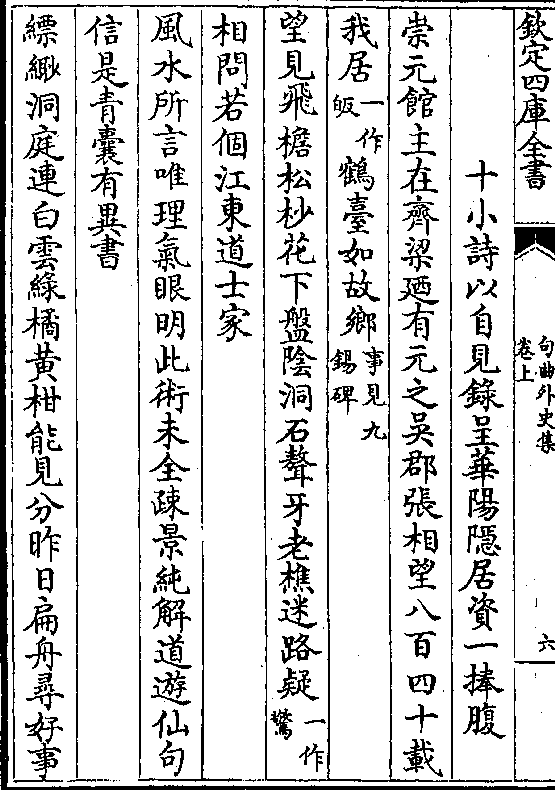 欽定四庫全書
句曲外史集
卷上
六
十小詩以自見錄呈華陽隱居資一捧腹
崇元館主在齊梁廼有元之吳郡張相望八百四十載
我居一作皈鶴臺如故鄉事見九錫碑
望見飛檐松杪花下盤陰洞石聱牙老樵迷路疑一作驚
相問若個江東道士家
風水所言唯理氣眼明此術未全疎景純解道遊仙句
信是青囊有異書
縹緲洞庭連白雲綠橘黃柑能見分昨日扁舟尋好事